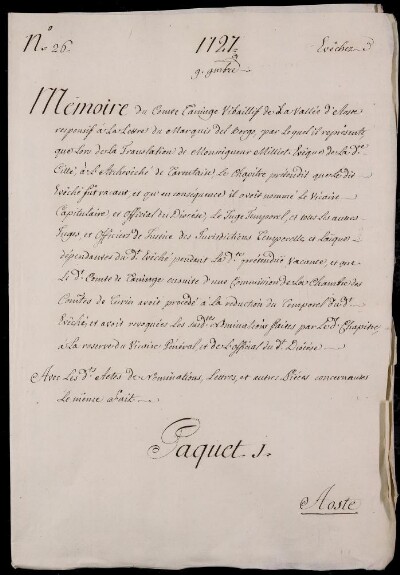 No. 26.
1727
9. 9mbre
Evêchez 3
Mémoire du Comte Tavinge Vibaillif de la Vallée d'Aoste
responsif à la Lettre du Marquis del Borgo, par lequel il représente
que lors de la Translation de Monseigneur Milliet Evêque de la de
Citté, à l'Archevêché de Tarentaise, le Chapitre prétendit que le dit
Evêché fût vacant, et qu'en conséquence il avoit nommé le Vicaire
Capitulaire, et Official du Diocèse, le Juge Temporel, et tous les autres
Juges, et Officiers de Justice des Jurisdictions Temporelles et Laiques
dépendantes du dt Evêché pendent la dte prétendüe Vacance, et que
le dt Comte de Tavinge ensuite d'une Commission de la Chambre des
Comtes de Turin avoit procédé à la réduction du Temporel du dt
Evêché, et avoit revoquées les sudtes Nominations faites par le dt Chapitre,
a la reserve du Vicaire Général, et de l'official du dt Diocèse
Avec les dts Actes de Nominations, Lettres, et autres Pièces concernantes
le même Fait
Paquet 1.
Aoste